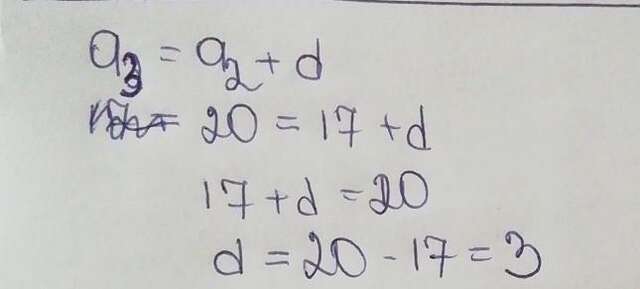 a₃ = a₂ + d
20 = 17 + d
17 + d = 20
d = 20 - 17 = 3